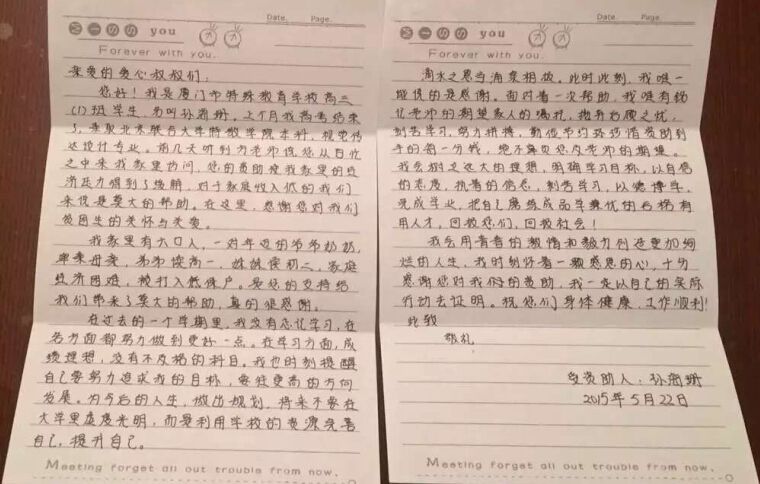 Date. Page.
MISS you
Forever with you.
亲爱的爱心叔叔们:
您好!我是厦门市特殊教育学校高三
(1)班学生,我叫孙甭珊。上个月我高考结束
了,录取北京联合大学特教学院本科,视觉传
达设计专业。前几天听到方老师说您从百忙
之中来我家里访问,您的资助使我家里的经
济压力得到了缓解,对于家庭收入低的我们
来说是莫大的帮助。在这里,感谢您对我们
贫困生的关怀与关爱。
我家里有六口人,一对年迈的爷爷奶奶,
父亲母亲,弟弟读高一,妹妹读初二,家庭
经济困难,被打入低保户。是您的支持给
我们带来了莫大的帮助,真的很感谢。
在过去的一个学期里,我没有忘记学习,在
各方面都努力做到更好一点。在学习方面,成
绩理想,没有不及格的科目。我也时刻提醒
自己要努力追求我的目标,要往更高的方向
发展。为今后的人生,做出规划,将来不要在
大学里虚度光明,而是利用学校的资源完善
自己,提升自己。
Meeting forget all out trouble from now.
Date. Page.
MISS you
Forever with you.
滴水之恩当涌泉相报。此时此刻,我唯一
能说的是感谢。面对着一次帮助,我唯有铭
记老师的期望家人的嘱托,抛开后顾之忧,
刻苦学习,努力拼搏,勤俭节约珍惜资助到
手的每一分钱,绝不辜负您及老师的期望。
我会树立远大的理想,明确学习目标,以自信
的态度,执着的信念,刻苦学习,以德博学,
完成学业,把自己磨练成品学兼优的合格有
用人才,回报您们,回报社会!
我会用青春的激情和毅力创造更加绚
烂的人生,我时刻怀着一颗感恩的心,十分
感谢您对我们的资助,我一定以自己的实际
行动去证明。祝您们身体健康,工作顺利!
此致
敬礼
受资助人:孙珊
2015年5月22日
Meeting forget all out trouble from now.